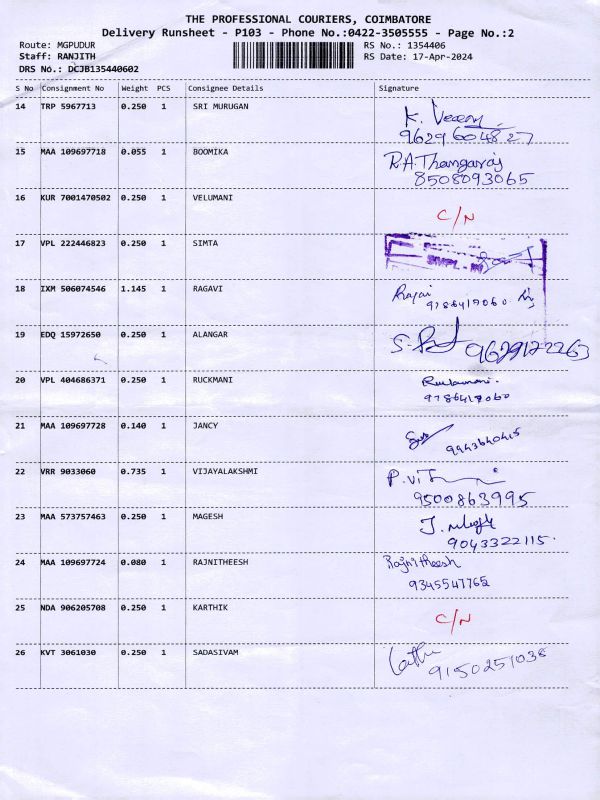 THE PROFESSIONAL COURIERS, COIMBATORE
Delivery Runsheet - P103 - Phone No.:0422-3505555 - Page No.:2
Route: MGPUDUR RS No.: 1354406
Staff: RANJITH RS Date: 17-Apr-2024
DRS No.: DCJB135440602
S No Consignment No Weight PCS Consignee Details Signature
14 TRP 5967713 0.250 1 SRI MURUGAN K. Veeran
9629604827
15 MAA 109697718 0.055 1 BOOMIKA R.A.Thangaraj
8508093065
16 KUR 7001470502 0.250 1 VELUMANI C/N
17 VPL 222446823 0.250 1 SIMTA
18 IXM 506074546 1.145 1 RAGAVI Ragavi
9786417060
19 EDQ 15972650 0.250 1 ALANGAR 9629122263
20 VPL 404686371 0.250 1 RUCKMANI Ruckmani
9786417060
21 MAA 109697728 0.140 1 JANCY 9943640415
22 VRR 9033060 0.735 1 VIJAYALAKSHMI
9500863995
23 MAA 573757463 0.250 1 MAGESH
9043322115.
24 MAA 109697724 0.080 1 RAJNITHEESH Rajnitheesh
9345547765
25 NDA 906205708 0.250 1 KARTHIK C/N
26 KVT 3061030 0.250 1 SADASIVAM
9150251038